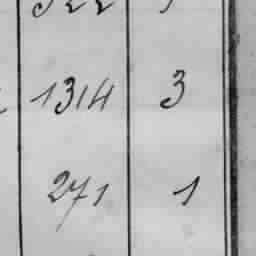 1314 3
271 1